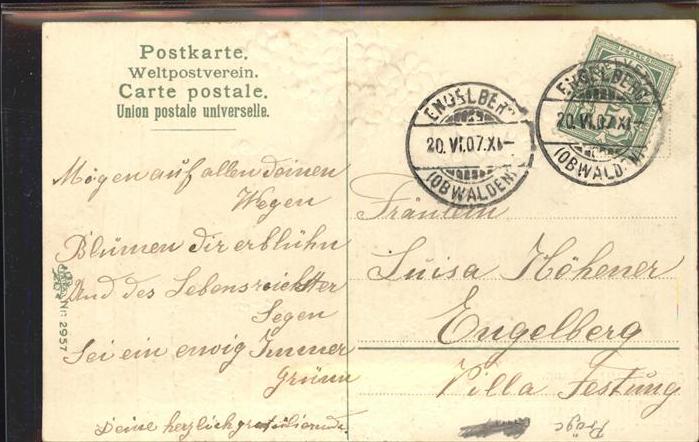 Postkarte.
Weltpostverein.
Carte postale.
Union postale universelle.
ENGELBERG
20.VI.07.XI–
(OBWALDEN)
ENGELBERG
20.VI.07.XI–
(OBWALDEN)
Mögen auf allen deinen
Wegen
Blumen dir erblühn
Und des Lebens
Segen
Sei ein ewig Immer
Grünn
Deine herzlich gratulierende
Nr. 2957
Fräulein
Luisa Höhener
Engelberg
Villa Festung